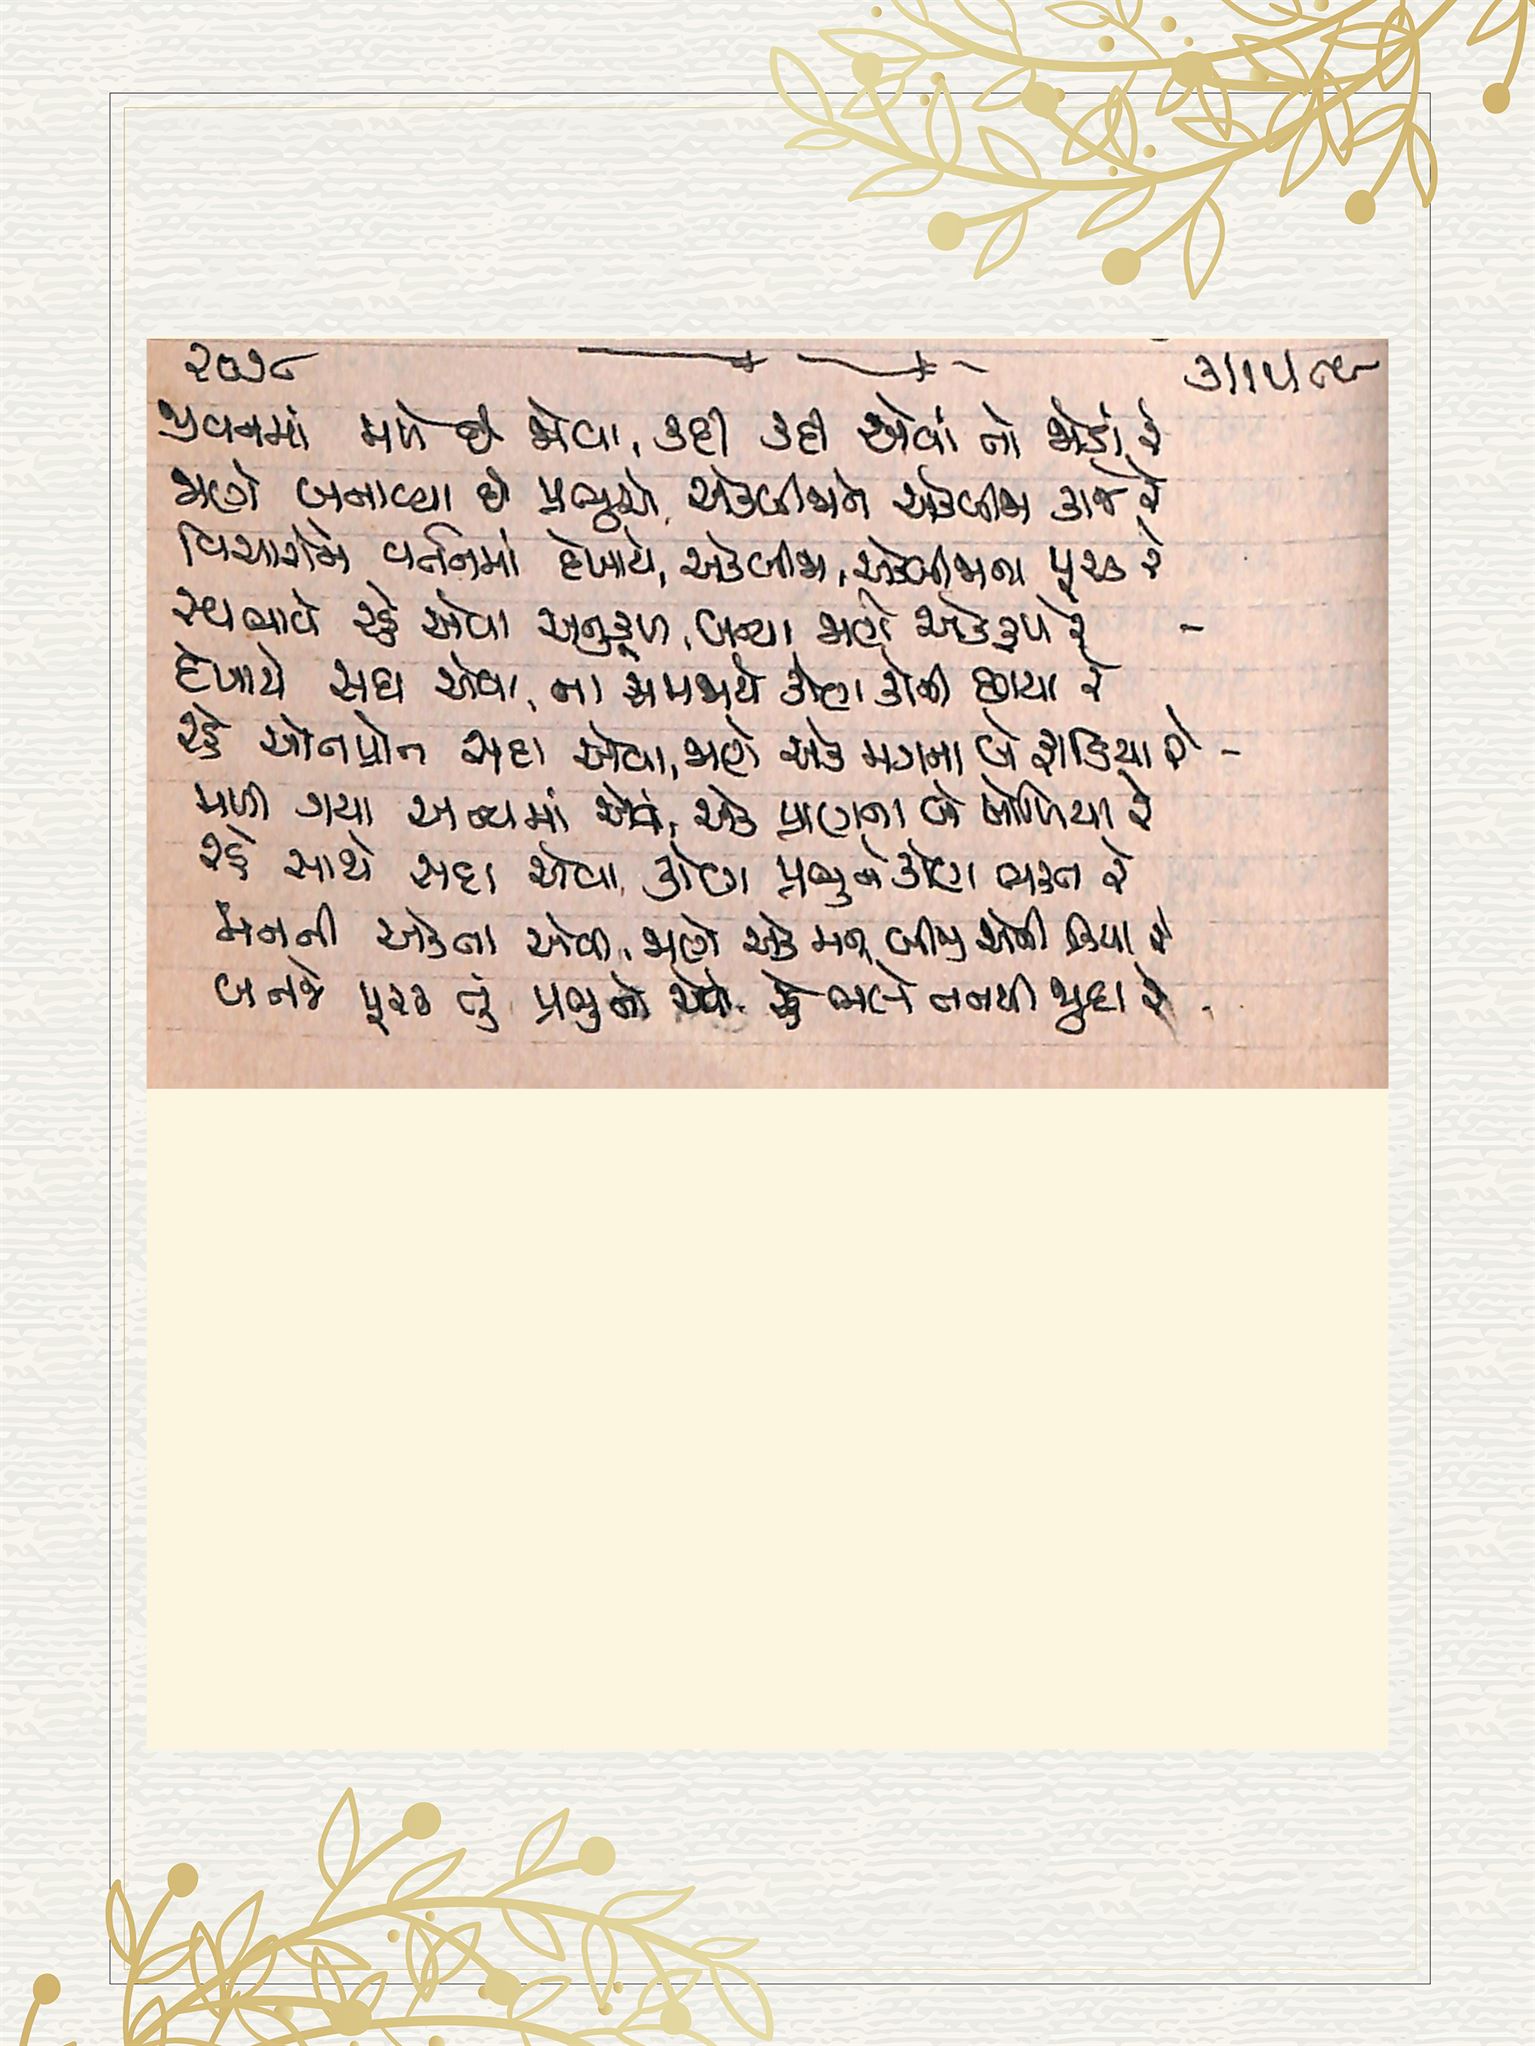 ૨૦૭૮ ૩।૧૫।૮૯
જીવનમાં મળે છે એવા, કદી કદી એવાં તો જોડાં રે
જાણે બનાવ્યા છે પ્રભુએ, એકબીજાને એકબીજા કાજે રે
વિચારોને વર્તનમાં દેખાયે, એકબીજા, એકબીજાના પૂરક રે
સ્વભાવે રહે એવા અનુકૂળ, બન્યા જાણે એકરૂપ રે -
દેખાયે સદા એવા, ના સમજાયે કોણ કોની છાયા રે
રહે ઓતપ્રોત સદા એવા, જાણે એક મગના બે ફાડિયા રે -
મળી ગયા અન્યમાં એવા, એક પ્રાણના બે ખોળિયા રે
રહે સાથે સદા એવા, કોણ પ્રભુ ને કોણ ભક્ત રે
મનની એકતા એવી, જાણે એક મન બીજુ એની ક્રિયા રે
બનજે પૂરક તું પ્રભુનો એવો, રહે ભલે તનથી જુદા રે.